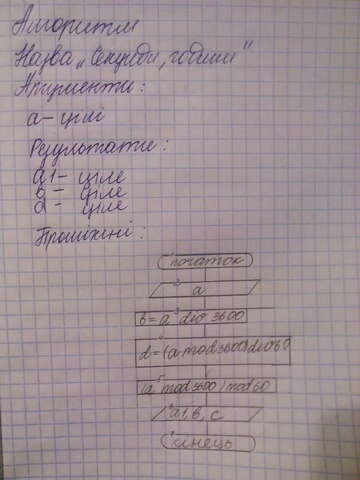 Алгоритм
Назва „Секунди, години"
Аргументи:
a – цілі
Результати:
a1 – ціле
в – ціле
d – ціле
Проміжні:
1 початок
2 a
3 b = a div 3600
4 d = (a mod 3600) div 60
5 (a mod 3600) mod 60
6 a1, b, c
7 кінець